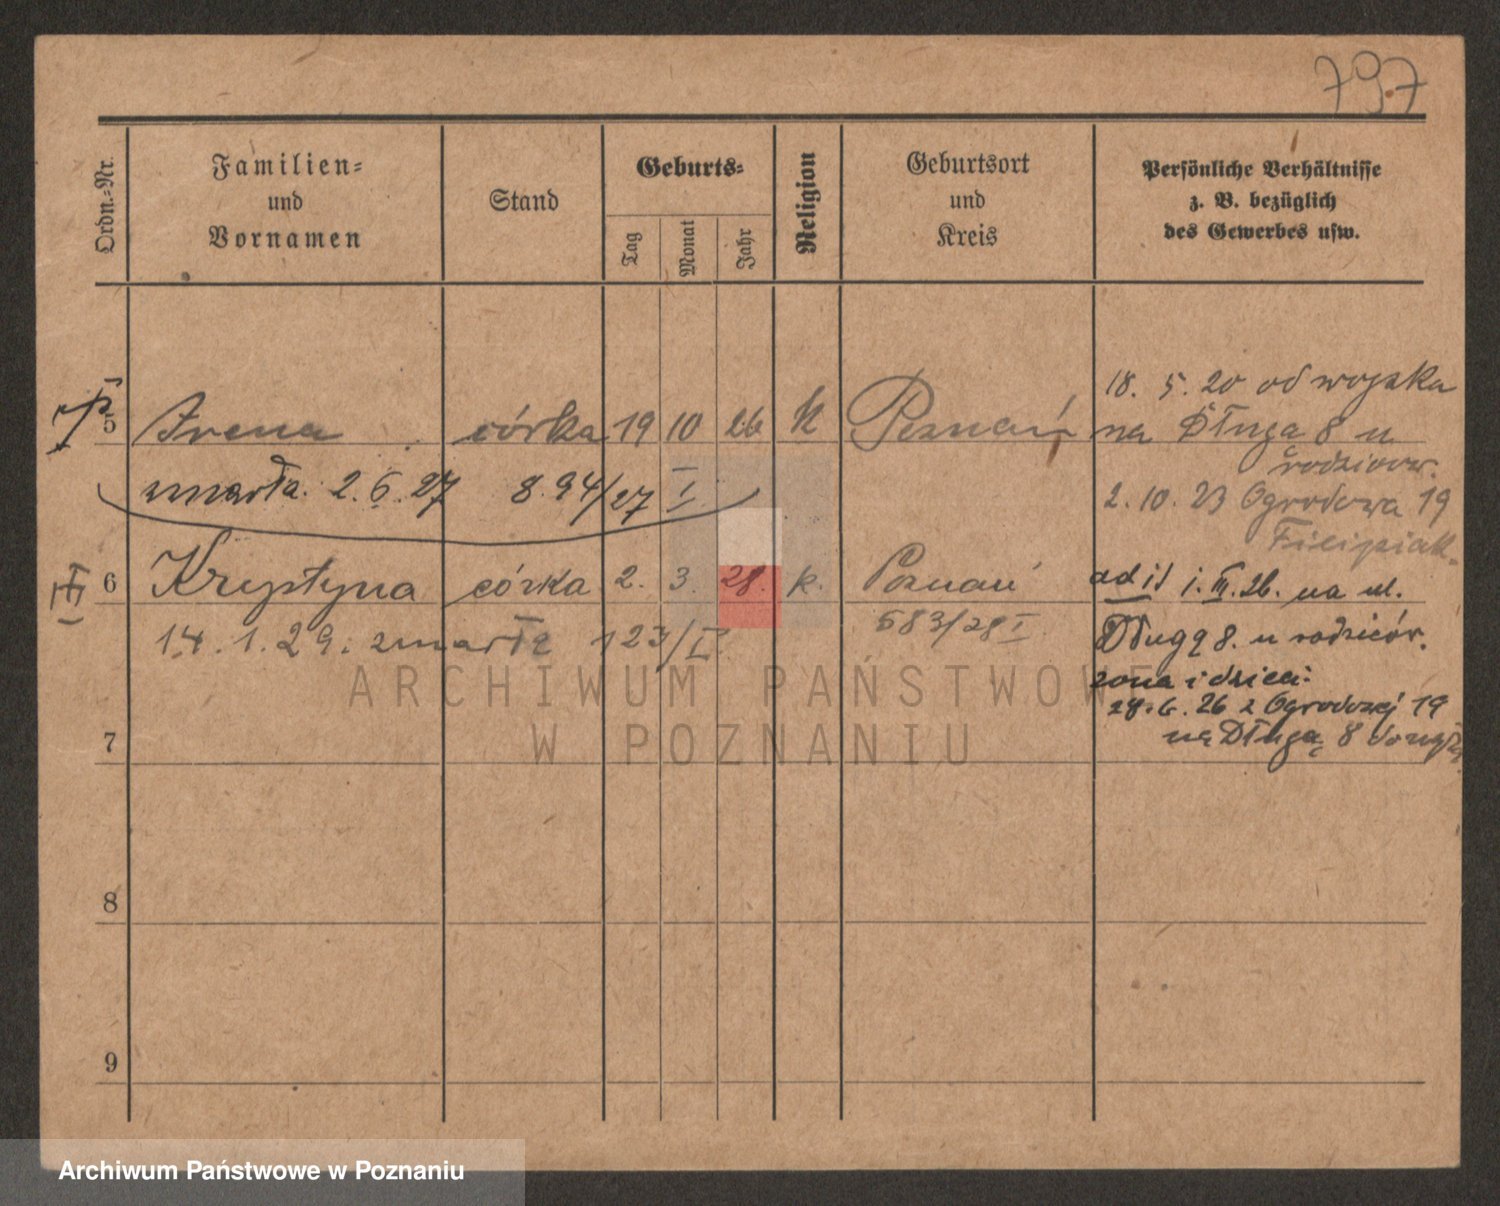 797
Ordn.-Nr.
Familien-
und
Vornamen
Stand
Geburts-
Tag
Monat
Jahr
Religion
Geburtsort
und
Kreis
Persönliche Verhältnisse
z. B. bezüglich
des Gewerbes usw.
5 Irena córka 19 10 26 k Poznań
zmarła. 2.6.27 894/27 I
6 Krystyna córka 2. 3. 28. k. Poznań
14.1.29. zmarła 123/I
583/28 I
18. 5. 20 od wojska
na Długą 8 u
rodziców.
2. 10. 23 Ogrodowa 19
Filipiak
ad 1) 1. III. 26. na ul.
Długą 8. u rodziców.
żona i dzieci:
28. 6. 26 z Ogrodowej 19
na Długą 8 do męża
7
8
9
ARCHIWUM PAŃSTWOWE
W POZNANIU
Archiwum Państwowe w Poznaniu